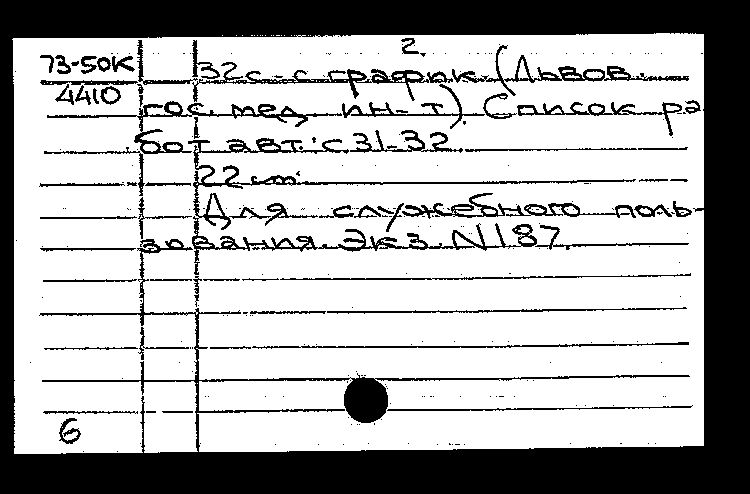 2.
73-50к 32с. с график. (Львов.
4410 гос. мед. ин-т). Список ра
бот авт.: с. 31-32
22 см.
Для служебного поль-
зования. Экз. N187.
6